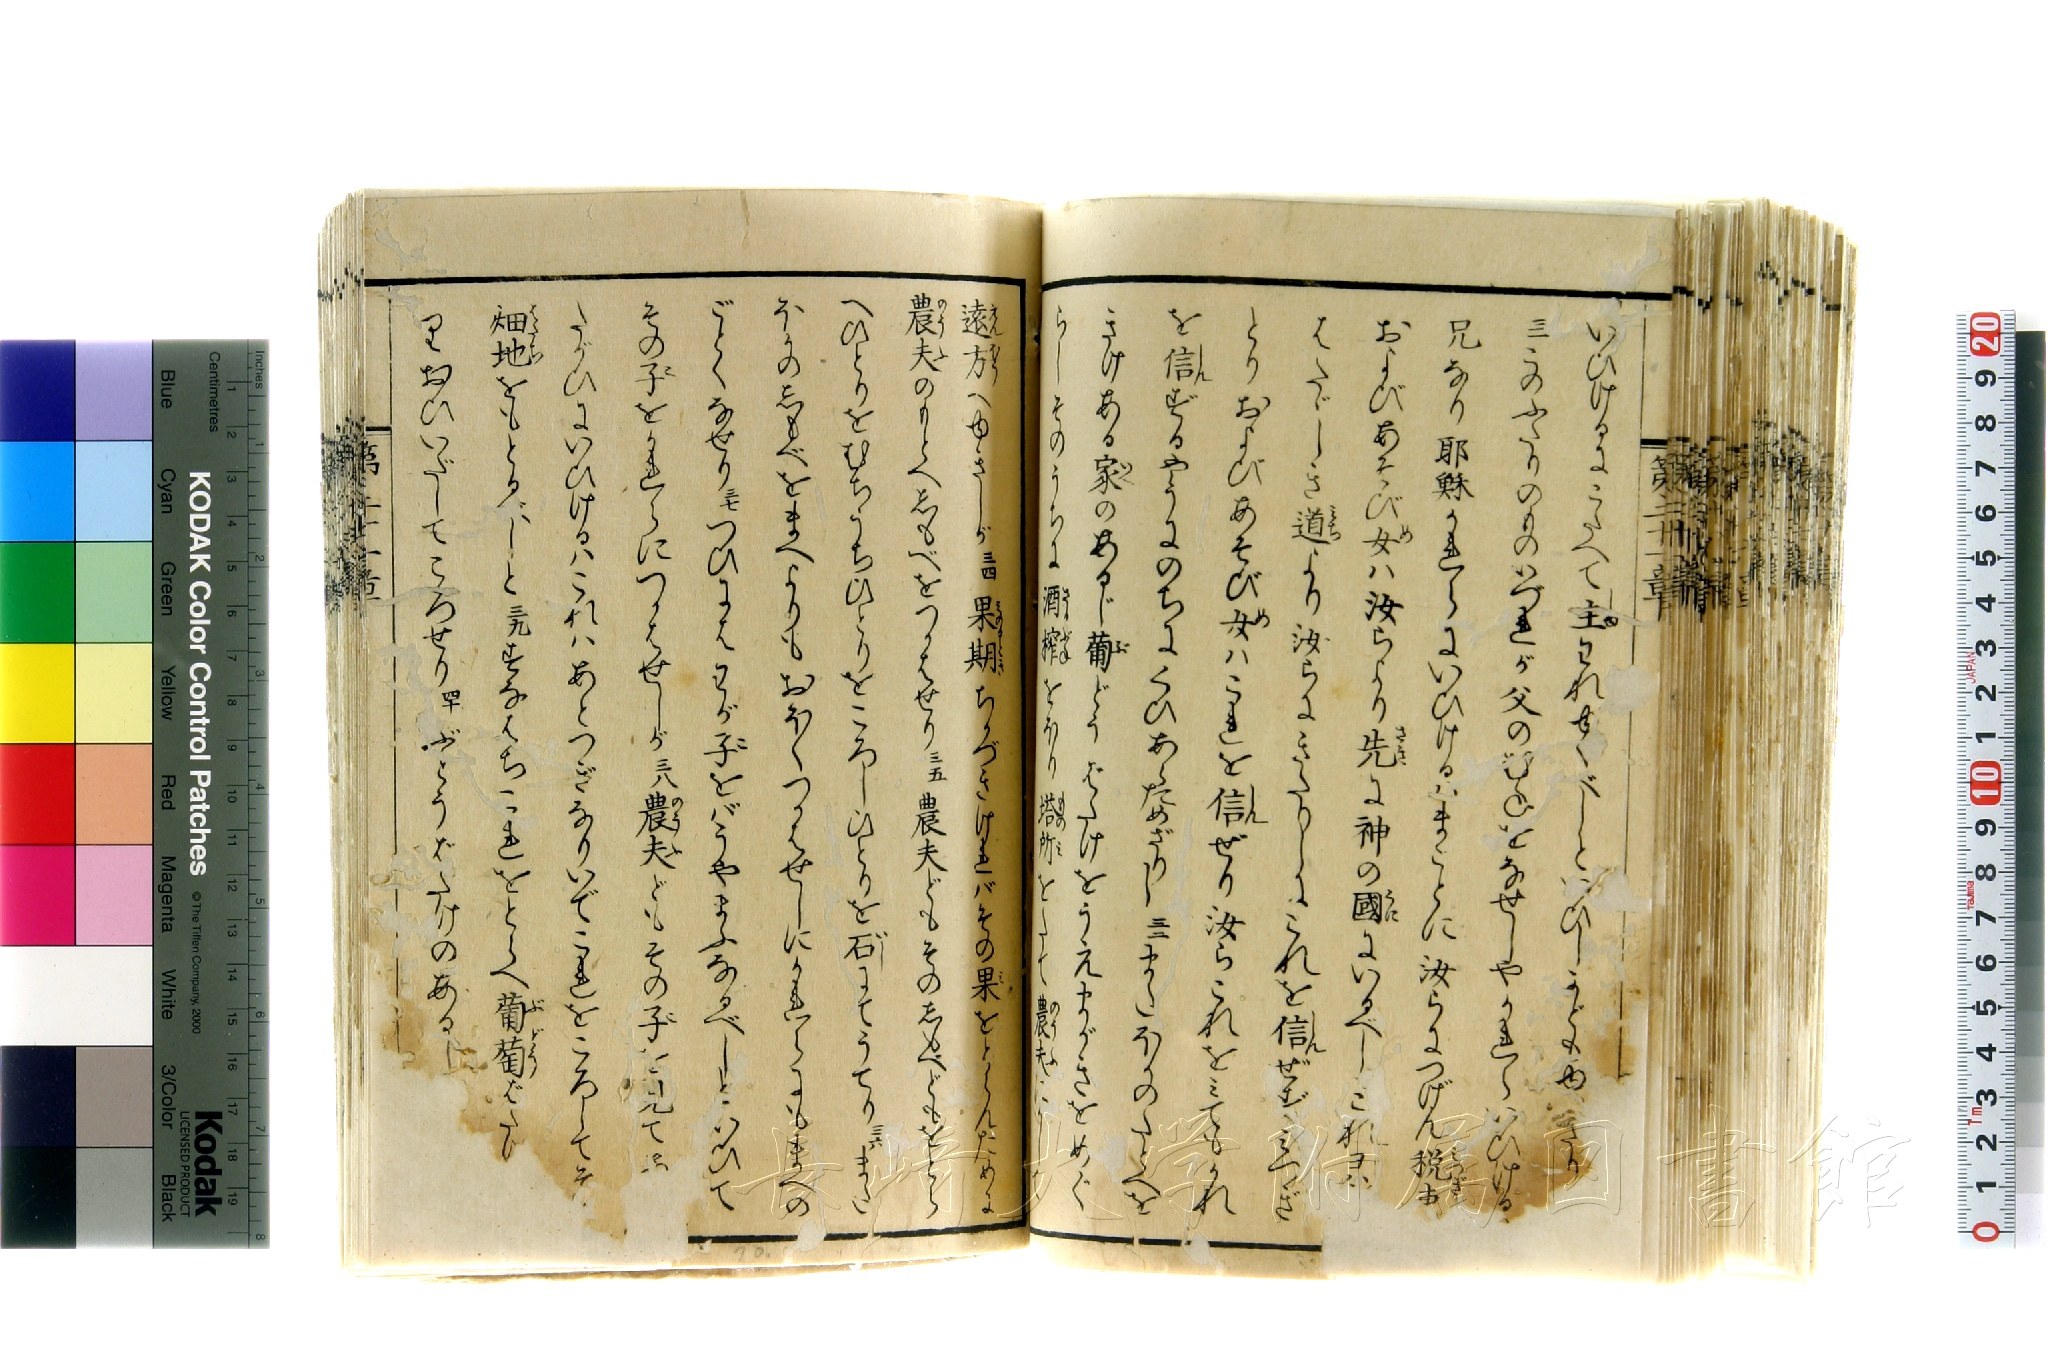 いひけるにこたへて主われゆくべしといひしかどもゆ
三一このふたりのものいづれが父のむねをなせしやかれらいひける
兄なり耶穌かれらにいひけるハまことに汝らにつげん税吏
およびあそび女ハ汝らより先に神の國にいるべし
たゞしき道より汝らにきたりしにこれを信ぜず
とりおよびあそび女ハこれを信ぜり汝らこれをみてもかれ
を信ずるやうにのちにくひあらためざりし 三三 またほかのたとへを
きけある家のあるじ葡どうばたけをうえまがきをめぐ
らしそのうちに酒搾をほり塔所をたて農夫に
遠方へゆきしが 三四 果期ちかづきけれバその果をとらんために
農夫のもとへしもべをつかはせり 三五 農夫どもそのしもべどもをとら
へひとりをむちうちひとりをころしひとりを石にてうてり 三六 また
ほかのしもべをまへよりもおほくつかはせしにかれらにもまへの
ごとくなせり 三七 つひにはわが子をバうやまふなるべしといひて
その子をかれらにつかはせしが 三八 農夫どもその子を見て
たがひにいひけるハこれハあとつぎなりいでこれをころしてそ
畑地をもとるべしと 三九 すなはちこれをとらへ葡萄ばたけ
よりおひいだしてころせり 四十 ぶどうばたけのあるじ
第二十一章
第二十一章
KODAK Color Control Patches
© The Tiffen Company, 2000
Kodak
LICENSED PRODUCT
Inches
Centimetres
Blue
Cyan
Green
Yellow
Red
Magenta
White
3/Color
Black
長崎大学附属図書館
JAPAN
Tajima
Tm